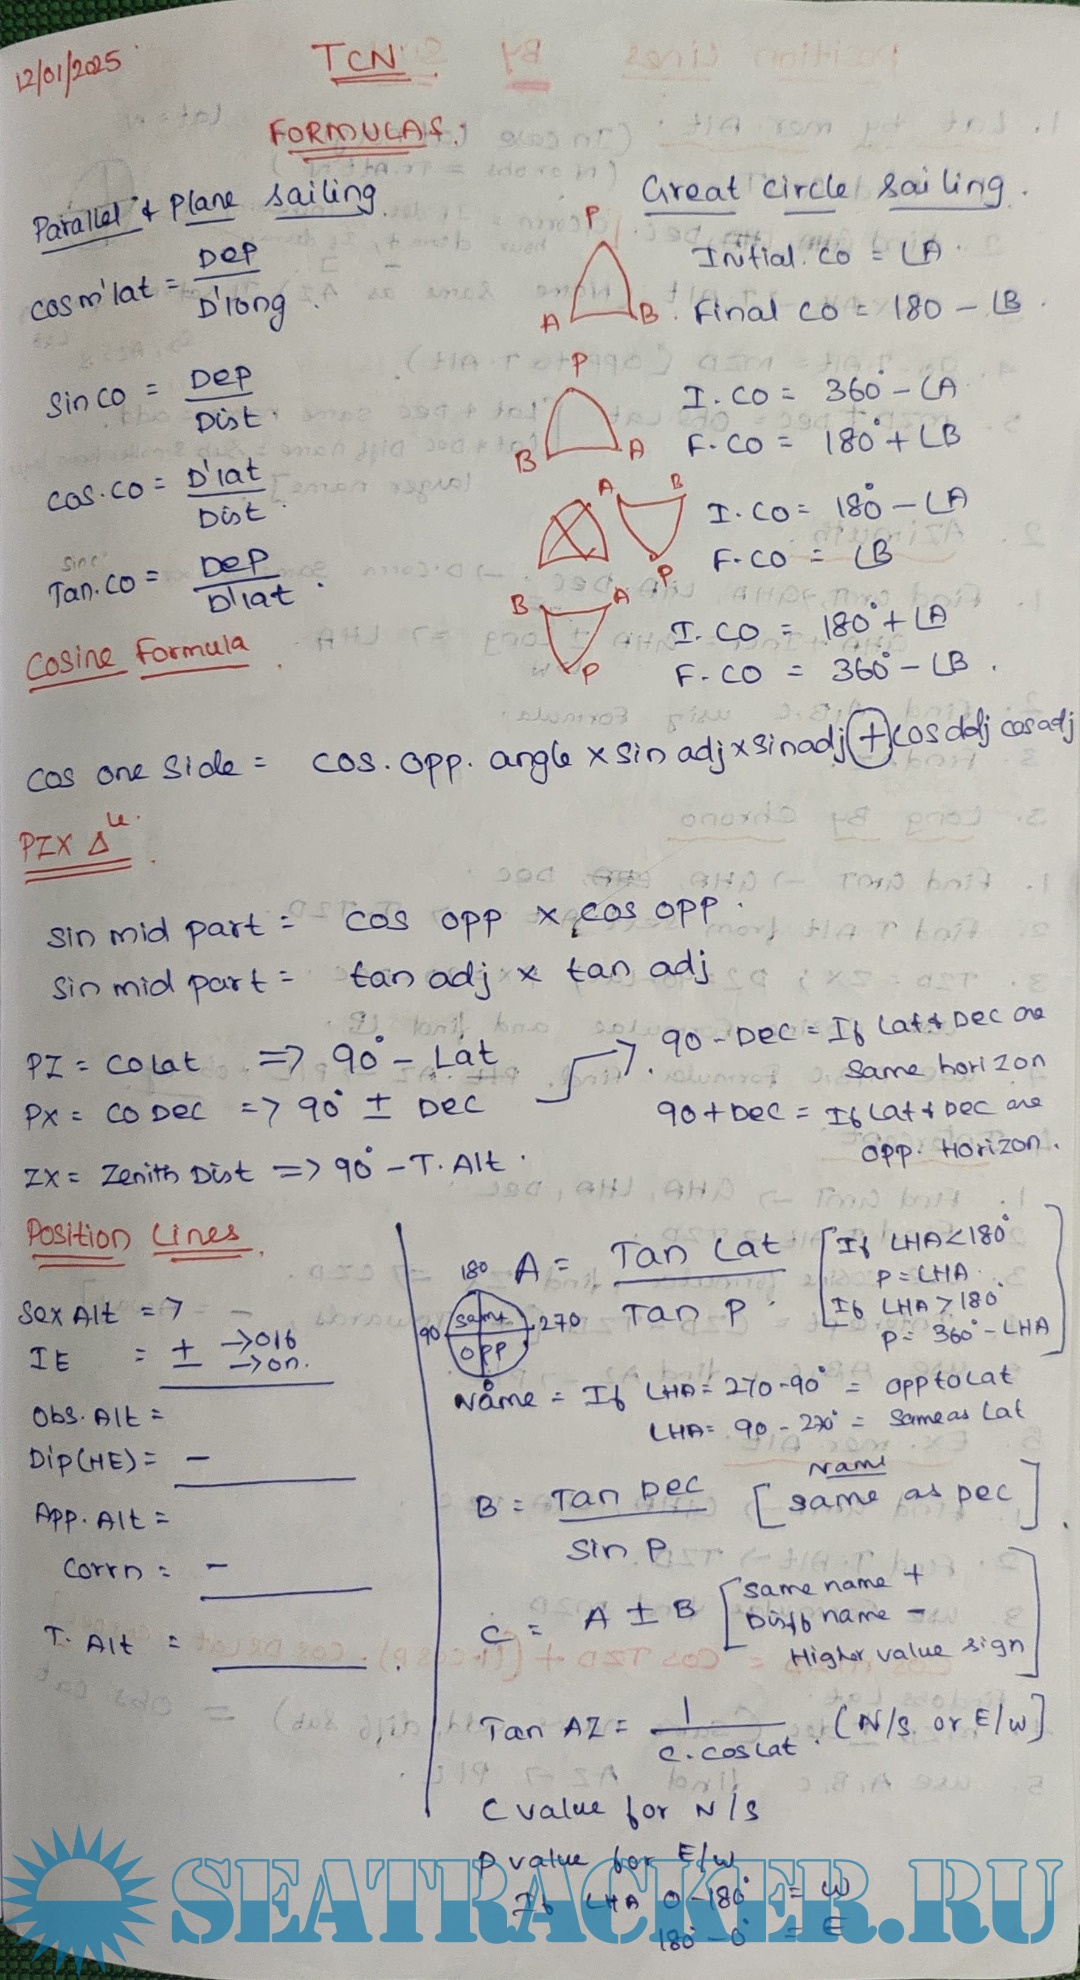 12/01/2025
TCN
FORMULAS:
Parallel & Plane Sailing.
cos m'lat = Dep / D'long.
Sin CO = Dep / Dist
Cos.CO = D'lat / Dist.
Tan.CO = Dep / D'lat.
Great Circle Sailing.
P
A B
Initial. CO = ∠A.
Final CO = 180 - ∠B.
P
B A
I. CO = 360° - ∠A
F. CO = 180° + ∠B
A B
P
I. CO = 180° - ∠A
F. CO = ∠B
B A
P
I. CO = 180° + ∠A
F. CO = 360° - ∠B.
Cosine Formula.
Cos one side = cos. opp. angle x sin adj x sin adj + cos adj cos adj
PZX Δle.
Sin mid part = cos opp x cos opp.
Sin mid part = tan adj x tan adj
PZ = CO Lat => 90° - Lat
PX = CO Dec => 90° ± Dec
90 - Dec = If Lat & Dec are
Same horizon
90 + Dec = If Lat & Dec are
opp. Horizon.
ZX = Zenith Dist => 90° - T. Alt.
Position Lines.
Sex Alt =>
IE = ± → Off
→ on.
Obs. Alt =
Dip (HE) = -
App. Alt =
Corrn = -
T. Alt = .
180
90 270
same
opp
0
A = Tan Lat / Tan P.
[If LHA < 180°
P = LHA.
If LHA > 180°
P = 360° - LHA]
Name = If LHA = 270 - 90° = opp to Lat
LHA = 90 - 270° = Same as Lat
B = Tan Dec / Sin P
[Name
same as Dec]
C = A ± B
[Same name +
Diff name -
Higher value sign]
Tan AZ = 1 / C. Cos Lat. (N/S or E/W]
C value for N/S
P value for E/W.
If LHA 0 - 180° = W
180° - 0° = E
SEATRACKER.RU